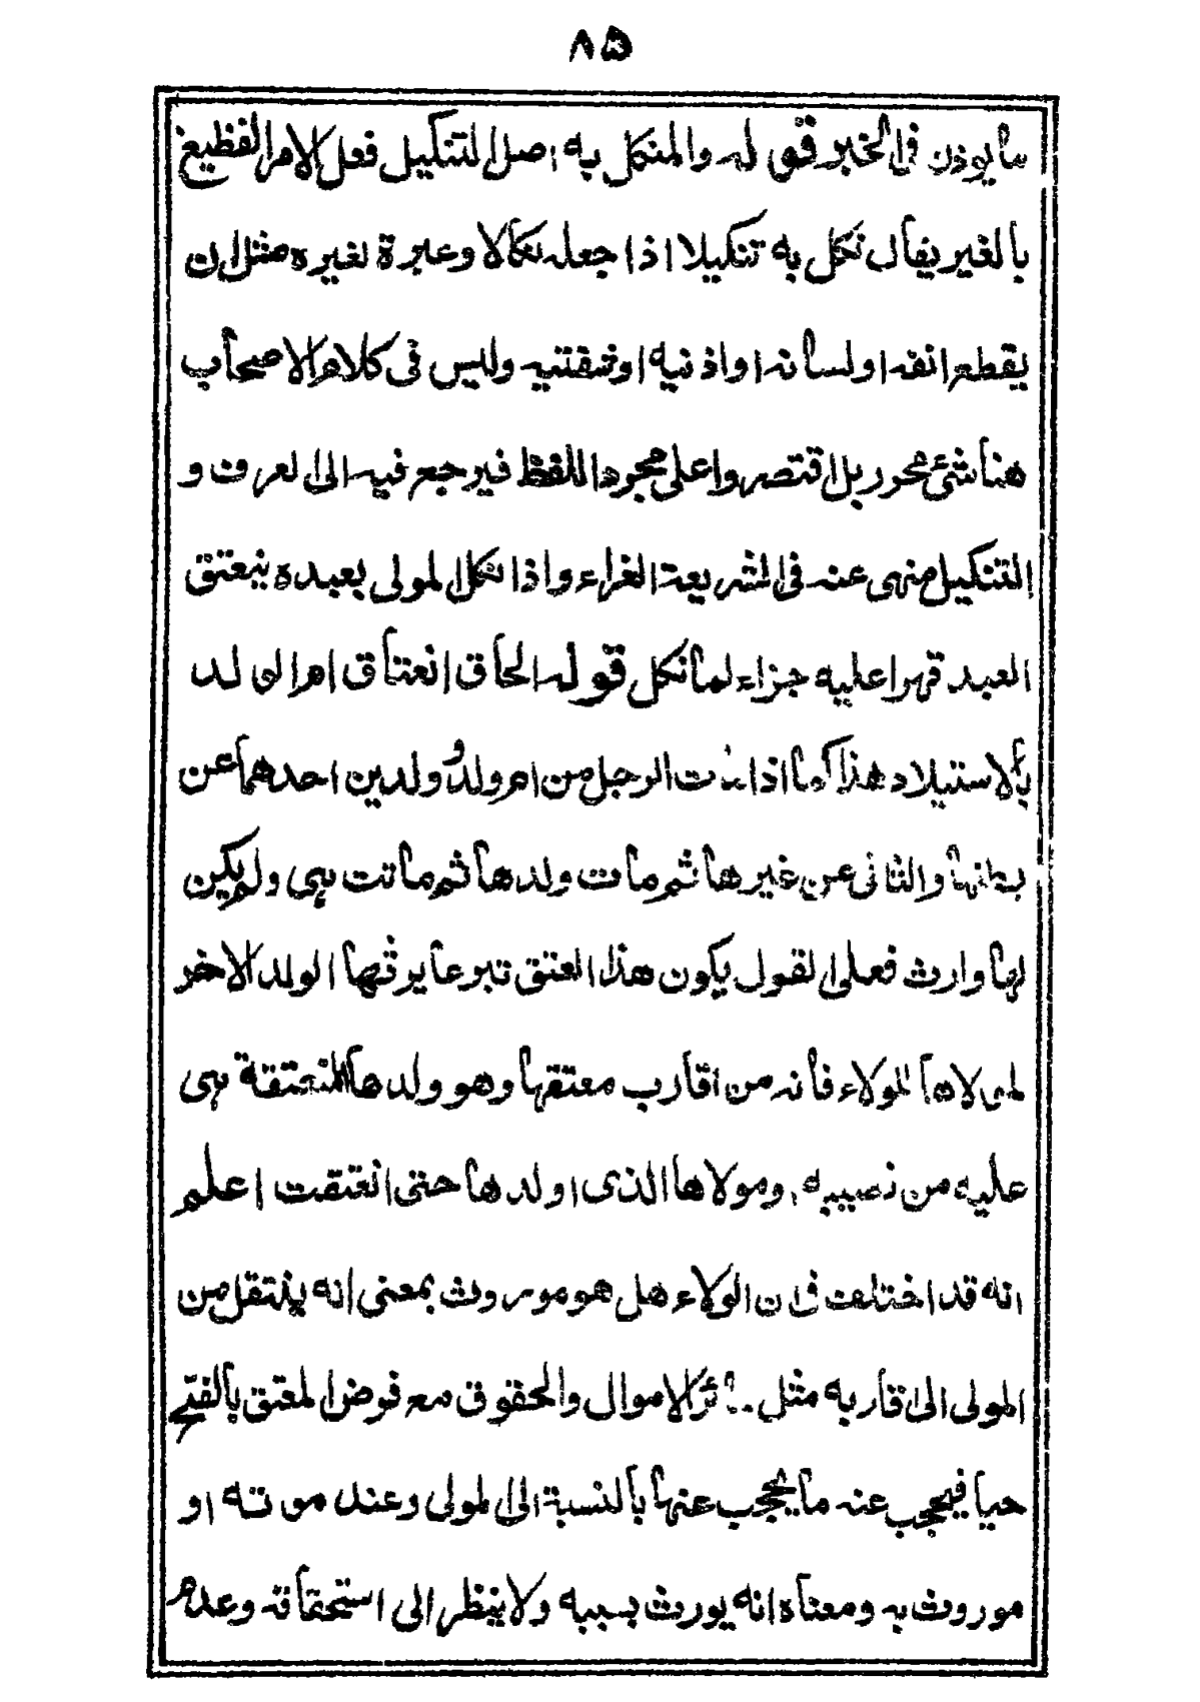 ٨٥
ما يوذن فى الخبر قوله والمنكل به اصل التنكيل فعل الامر الفظيع
بالغير يقال نكل به تنكيلا اذا جعله نكالا وعبرة لغيره مثل ان
يقطع انفه او لسانه او اذنيه او شفتيه وليس فى كلام الاصحاب
هنا شئ محرر بل اقتصروا على مجرد اللفظ فيرجع فيه الى العرف و
التنكيل منهى عنه فى الشريعة الغراء واذا نكل المولى بعبده ينعتق
العبد قهرا عليه جزاء لما نكل قوله الحاق انعتاق ام الولد
بالاستيلاد هذا كما اذا مات الرجل من ام ولد وولدين احدهما عن
بطنها والثانى عن غيرها ثم مات ولدها ثم ماتت هى ولم يكن
لها وارث فعلى القول يكون هذا العتق تبرعا يرثها الولد الاخر
لمولاها المولاء فانه من اقارب معتقها وهو ولدها المنعتقة هى
عليه من نصيبه ومولاها الذى اولدها حتى انعتقت اعلم
انه قد اختلف فى ان الولاء هل هو موروث بمعنى انه ينتقل من
المولى الى اقاربه مثل سائر الاموال والحقوق مع فرض المعتق بالفتح
حيا فيحجب عنه ما يحجب عنها بالنسبة الى المولى وعند موته او
موروث به ومعناه انه يورث بسببه ولا ينظر الى استحقاقه وعدم